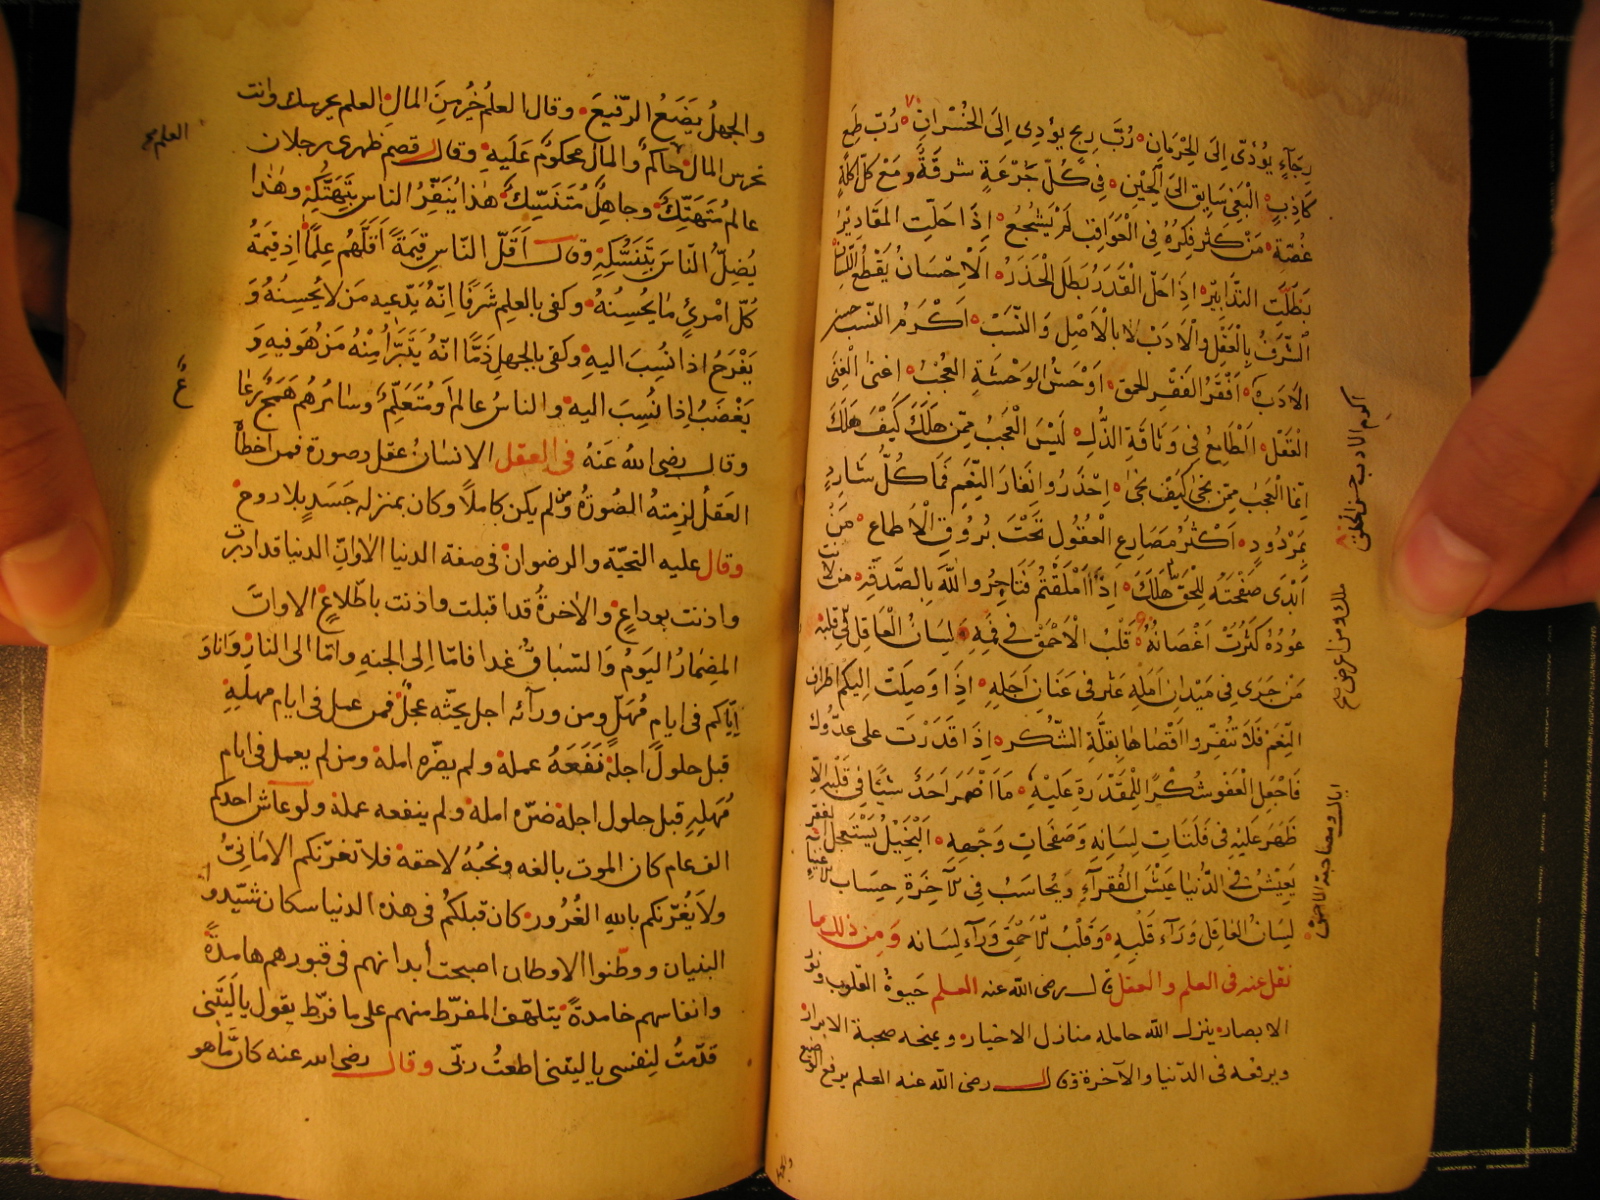 رجاء يؤدى الى الحرمان رب ربح يؤدى الى الخسران رب طمع
كاذب البغى سايق الى الحين فى كل جرعة شرقة ومع كل اكلة
غصة من كثر فكره فى العواقب لم يشجع اذا حلت المقادير
بطلت التدابير اذا حل القدر بطل الحذر الاحسان يقطع اللسان
الشرف بالعقل والادب لا بالاصل والنسب اكرم النسب حسن
الادب افقر الفقر الحمق اوحش الوحشة العجب اغنى الغنى
العقل الطامع فى وثاقة الذل ليس العجب ممن هلك كيف هلك
انما العجب ممن نجى كيف نجى احذروا نفار النعم فما كل شارد
بمردود اكثر مصارع العقول تحت بروق الاطماع من
ابدى صفحته للحق هلك اذا املقتم فتاجروا الله بالصدقة من لانت
عوده كثرت اغصانه قلب الاحمق فى فمه لسان العاقل فى قلبه
من جرى فى ميدان امله عثر فى عنان اجله اذا وصلت اليكم اطراف
النعم فلا تنفروا اقصاها بقلة الشكر اذا قدرت على عدوك
فاجعل العفو شكرا للمقدرة عليه ما اضمر احد شيئا فى قلبه الا
ظهر عليه فى فلتات لسانه وصفحات وجهه البخيل يستعجل الفقر
يعيش فى الدنيا عيش الفقراء ويحاسب فى الآخرة حساب الاغنياء
لسان العاقل وراء قلبه وقلب الاحمق وراء لسانه ومن ذلك ما
نقل عنه فى العلم والعقل قال رضى الله عنه العلم حيوة القلوب ونور
الابصار ينزل الله حامله منازل الاخيار ويمنحه صحبة الابرار
ويرفعه فى الدنيا والآخرة وقال رضى الله عنه العلم يرفع الوضيع
اكرم الادب حسن الخلق
اياك ومصاحبة الاحمق
والجهل يضع الرفيع وقال العلم خير من المال العلم يحرسك وانت
تحرس المال العلم حاكم والمال محكوم عليه وقال قصم ظهرى رجلان
عالم متهتك وجاهل متنسك هذا ينفر الناس بتهتكه وهذا
يضل الناس بتنسكه وقال اقل الناس قيمة اقلهم علما اذ قيمة
كل امرئ ما يحسنه وكفى بالعلم شرفا انه يدعيه من لا يحسنه و
يفرح اذا نسب اليه وكفى بالجهل ذما انه يتبرأ منه من هو فيه و
يغضب اذا نسب اليه والناس عالم او متعلم وسائرهم همج رعا
ع
وقال رضى الله عنه فى العقل الانسان عقل وصورة فمن اخطأ
العقل لزمته الصورة ولم يكن كاملا وكان بمنزله جسد بلا روح
وقال عليه التحية والرضوان فى صفة الدنيا الا وان الدنيا قد ادبرت
واذنت بوداع والاخرة قد اقبلت واذنت باطلاع الا وان
المضمار اليوم والسباق غدا فاما الى الجنه واما الى النار وانا و
اياكم فى ايام مهل ومن ورآئه اجل يحثه عجل فمن عمل فى ايام مهله
قبل حلول اجله نفعه عمله ولم يضره امله ومن لم يعمل فى ايام
مهله قبل حلول اجله ضره امله ولم ينفعه عمله ولو عاش احدكم
الف عام كان الموت بالغه ونحبه لاحقه فلا تغرنكم الامانى
ولا يغرنكم بالله الغرور كان قبلكم فى هذه الدنيا سكان شيدوا
البنيان ووطنوا الاوطان اصبحت أبدانهم فى قبورهم هامدة
وانفاسهم خامدة يتلهف المفرط منهم على ما فرط يقول يا ليتنى
قدمت لنفسى يا ليتنى اطعت ربى وقال رضى الله عنه كان ما هو